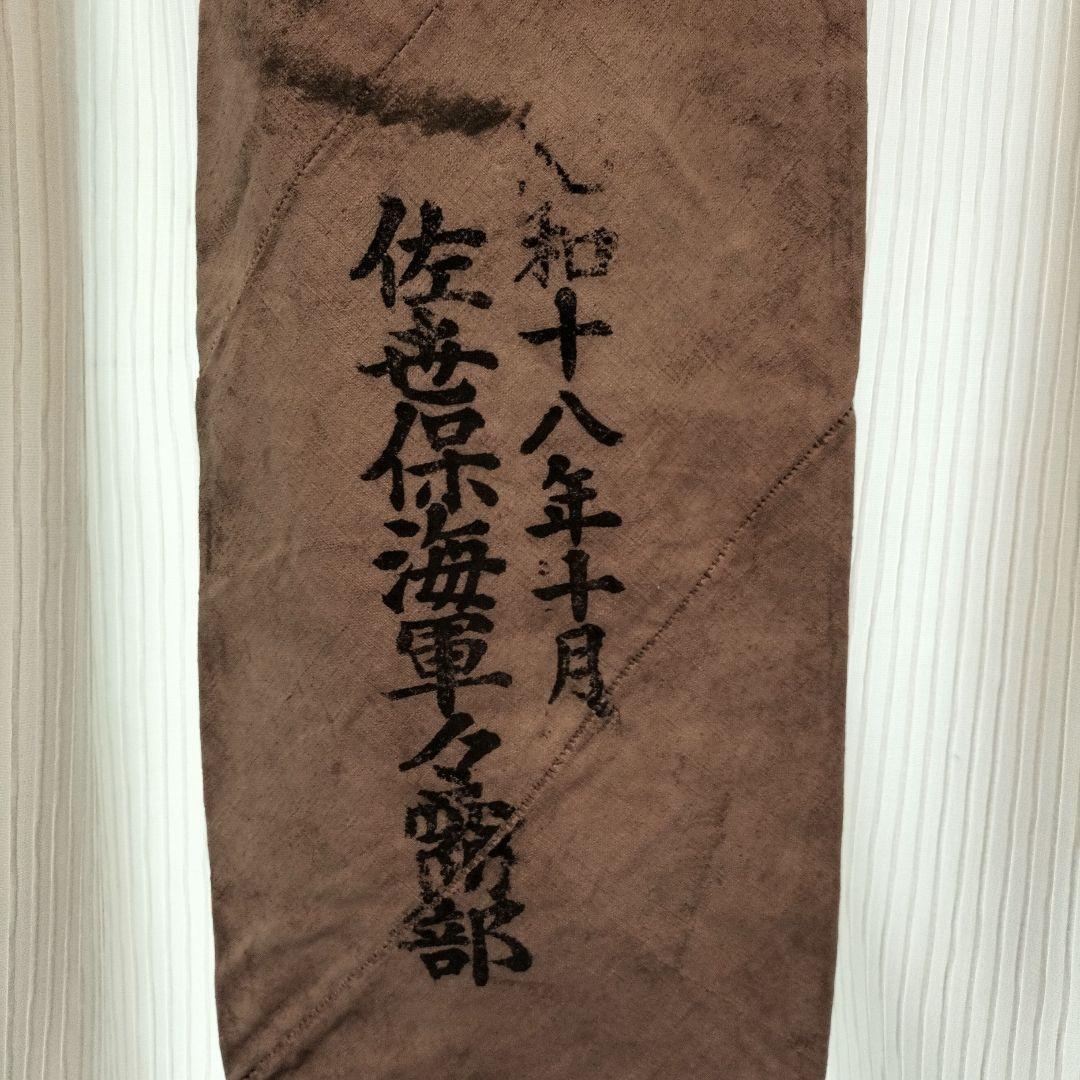 昭和十八年十月
佐世保海軍々需部